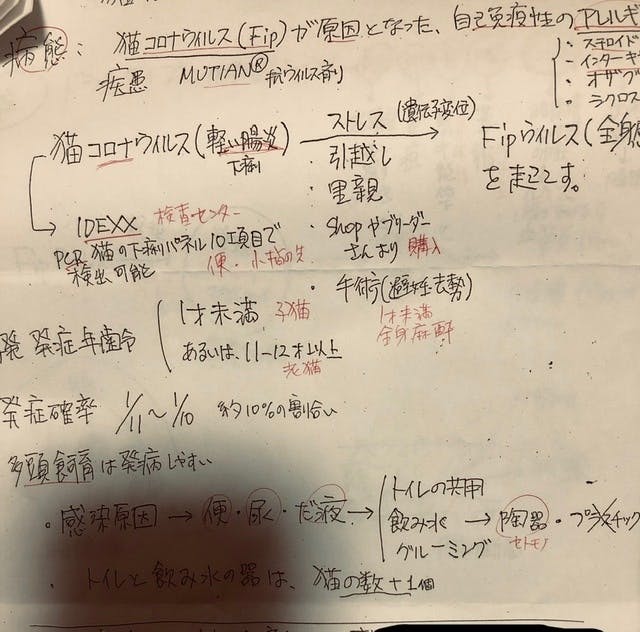 病態: 猫コロナウィルス(Fip)が原因となった、自己免疫性のアレルギ
疾患 MUTIAN® 抗ウィルス剤
ステロイド
インターキ
オザグ
シクロス
猫コロナウィルス(軽い腸炎)
下痢
ストレス (遺伝子変位)
Fipウィルス(全身
を起こす。
・引越し
・里親
・shopやブリーダー
さんより 購入
・手術(避妊去勢)
1才未満
全身麻酔
IDEXX 検査センター
PCR 猫の下痢パネル10項目で
検出可能 便・小指の先
発症年齢
1才未満 子猫
あるいは、11〜12才以上
老猫
発症確率 1/11〜1/10 約10%の割合い
多頭飼育は発病しやすい
・感染原因→便・尿・だ液→
トイレの共用
飲み水→陶器・プラスチック
セトモノ
グルーミング
・トイレと飲み水の器は、猫の数+1個